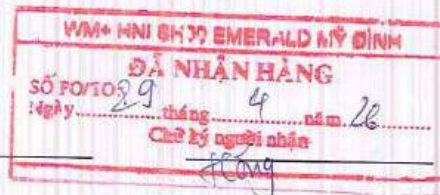 WM+ HNI SH 30 EMERALD MỸ ĐÌNH
ĐÃ NHẬN HÀNG
SỐ PO/TO
Ngày 29 tháng 4 năm 26
Chữ ký người nhận
Hồng